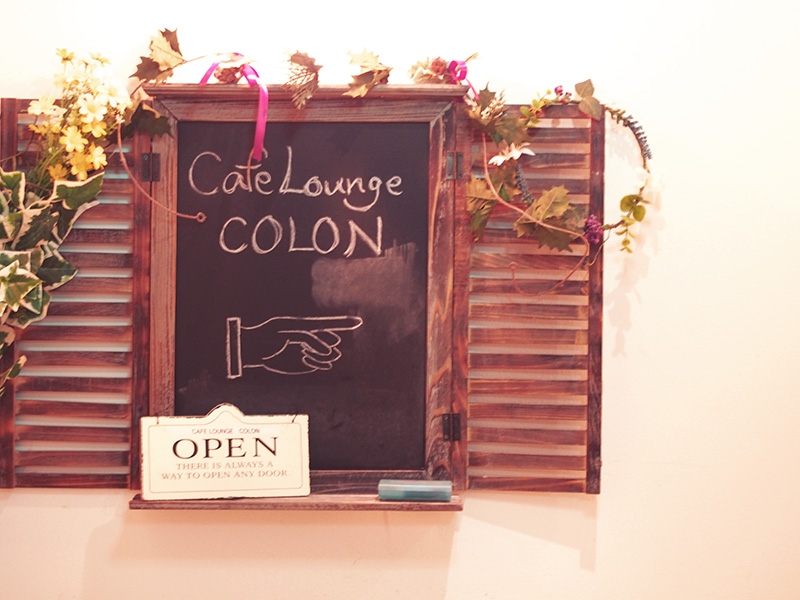 Café Lounge
COLON
CAFE LOUNGE COLON
OPEN
THERE IS ALWAYS A
WAY TO OPEN ANY DOOR.